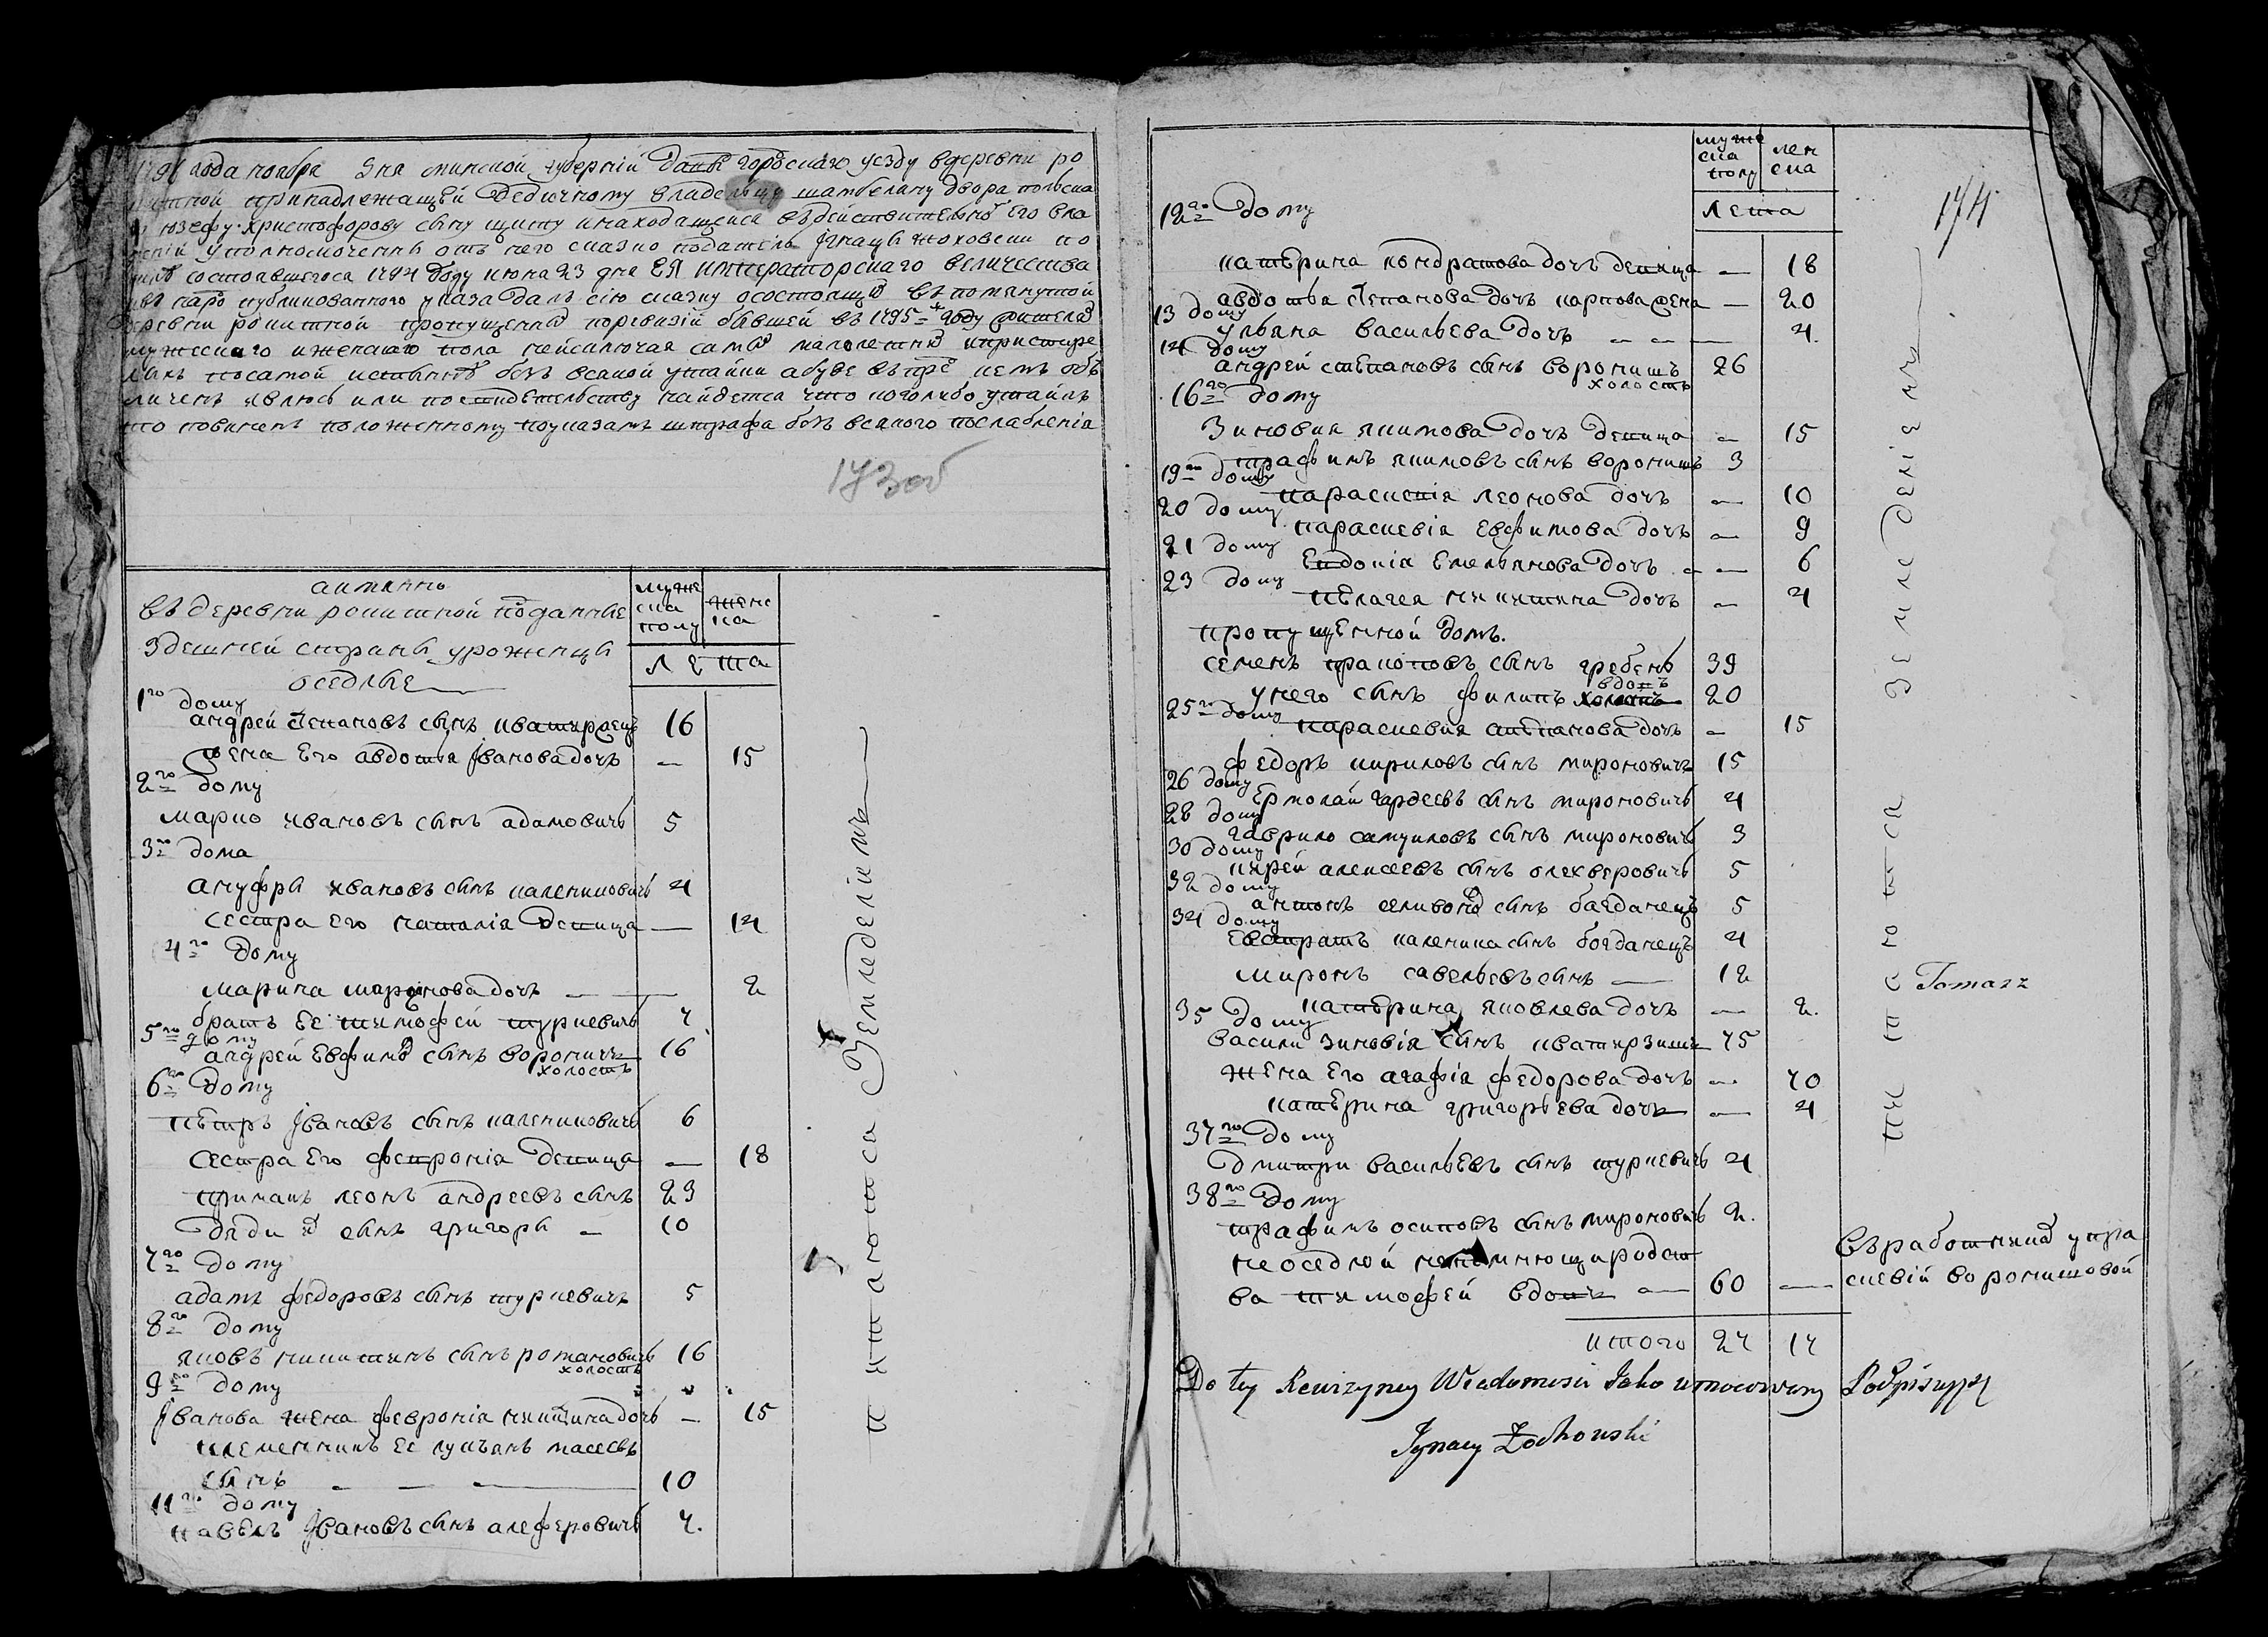 1796 года ноября дня минской губерний давыгородскаго уезду вдеревни ро
китной принадлежащей дедичному владельцу шамбелану двора польска
юзефу христофорову сыну щиту инаходящейся вдействительно его вла
дений уполномоченны отъ него сказко податель Игнацы жоховски по
силе состоявшегося 1794 году июня 23 дня ЕЯ императорскаго величества
публикованного указа далъ сію сказку осостоящих въпомянутой
деревни рокитной пропущенных поревизій бывшей въ 1795 году жителей
мужескаго иженскаго пола неисключая самых малолетних ипристаре
лыхъ посамой истинне безъ всякой утайки абуде въпредь кемъ объ
личенъ явлюсь или посвидетельству найдется что коголибо утаилъ
то повиненъ положенному поуказамъ штрафа безъ всякого послабленія
173об
а имянно
въ деревни рокитной подданные
здешней страны уроженцы
оседлые
мужеска полу
женска
лета
1го дому
андрей степановъ сынъ 16
жена его авдотья Иванова дочь — 15
2го дому
марко ивановъ сынъ адамовичь 5
3го дома
ануфры ивановъ сынъ каленикович 4
сестра его наталія девица — 14
4го дому
марина миронова дочь — 2
братъ ее тимофей туркевичь 7
5го дому
андрей евфимов сынъ вороничъ 16
холостъ
6го дому
петръ Ивановъ сынъ каленикович 6
сестра его февронія девица — 18
примакъ леонъ андреевъ сынъ 23
сынъ григоры — 10
7го дому
адамъ федоровъ сынъ туркевичъ 5
8го дому
яковъ никитинъ сынъ романовичь 16
холостъ
9го дому
Иванова жена февронія никитина дочь — 15
племенникъ ее лукъянъ масеевъ
сынъ — — — 10
11го дому
павелъ Ивановъ сынъ алеферовичь 7.
питаются земледеліемъ
мужеска полу
женска
лета
174
12го дому
катерина кондратова дочь девица — 18
авдотья степанова дочь карпова жена — 20
13 дому
ульяна васильева дочь — — — 4
14 дому
андрей степановъ сынъ воронишъ 26
холостъ
16го дому
Зиновия якимова дочь девица — 15
трафимъ якимовъ сынъ воронишъ 3
19го дому
параскевія леонова дочь — 10
20 дому
параскевіа евфимова дочь — 9
21 дому
евдокія емельянова дочь — — 6
23 дому
пелагея никитина дочь — 4
пропущенной домъ.
семенъ сынъ гребень 39
вдовъ
у него сынъ филипъ холостъ 20
25го дому
параскевия степанова дочь — 15
федоръ кириловъ сынъ миронович 15
26 дому
ермолай гардеевъ сынъ миронович 4
28 дому
гаврило самуиловъ сынъ миронович 3
30 дому
кирей алексеевъ сынъ олехверовичь 5
32 дому
антонъ селивонов сынъ багданець 5
34 дому
евстратъ каленика сынъ богданецъ 4
миронъ савельевъ сынъ — 12
35 дому
катерина яковлева дочь — 2.
васили зиновія сынъ 75
жена его агафія федорова дочь — 70
катерина григорьева дочь — 4
37го дому
дмитри васильевъ сынъ туркевич 4
38го дому
трафимъ осиповъ сынъ миронович 2.
неоседлой неимеющи родст
ва тимофей вдовъ — 60 —
въработниках упра
скевій воронишовой
итого 27 17
питаются земледеліемъ
Tomasz
Do tey Rewizyney Wiadomosci Jako umocowany Podpisuję
Jgnacy Żochowski